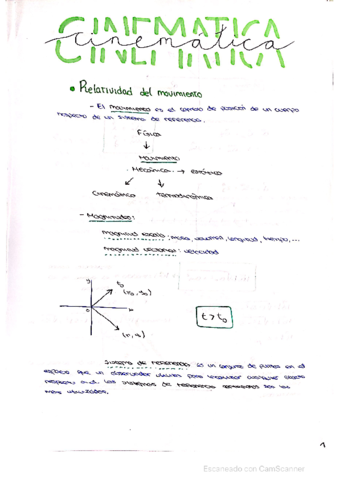 CINEMATICA
cinematica
• Relatividad del movimiento
- El movimiento es el cambio de posición de un cuerpo
respecto de un sistema de referencia.
Física
↓
Movimiento
Mecánica → estática
Cinemática Termodinámica
- Magnitudes:
magnitud escalar: masa, longitud, tiempo, ...
magnitud vectorial: velocidad
y
t₀
(x₀, y₀)
x
t > t₀
Sistema de referencia es un conjunto de puntos en el
espacio que un observador utiliza para
respecto a él. Los sistemas de referencia son los
más utilizados.
1
Escaneado con CamScanner